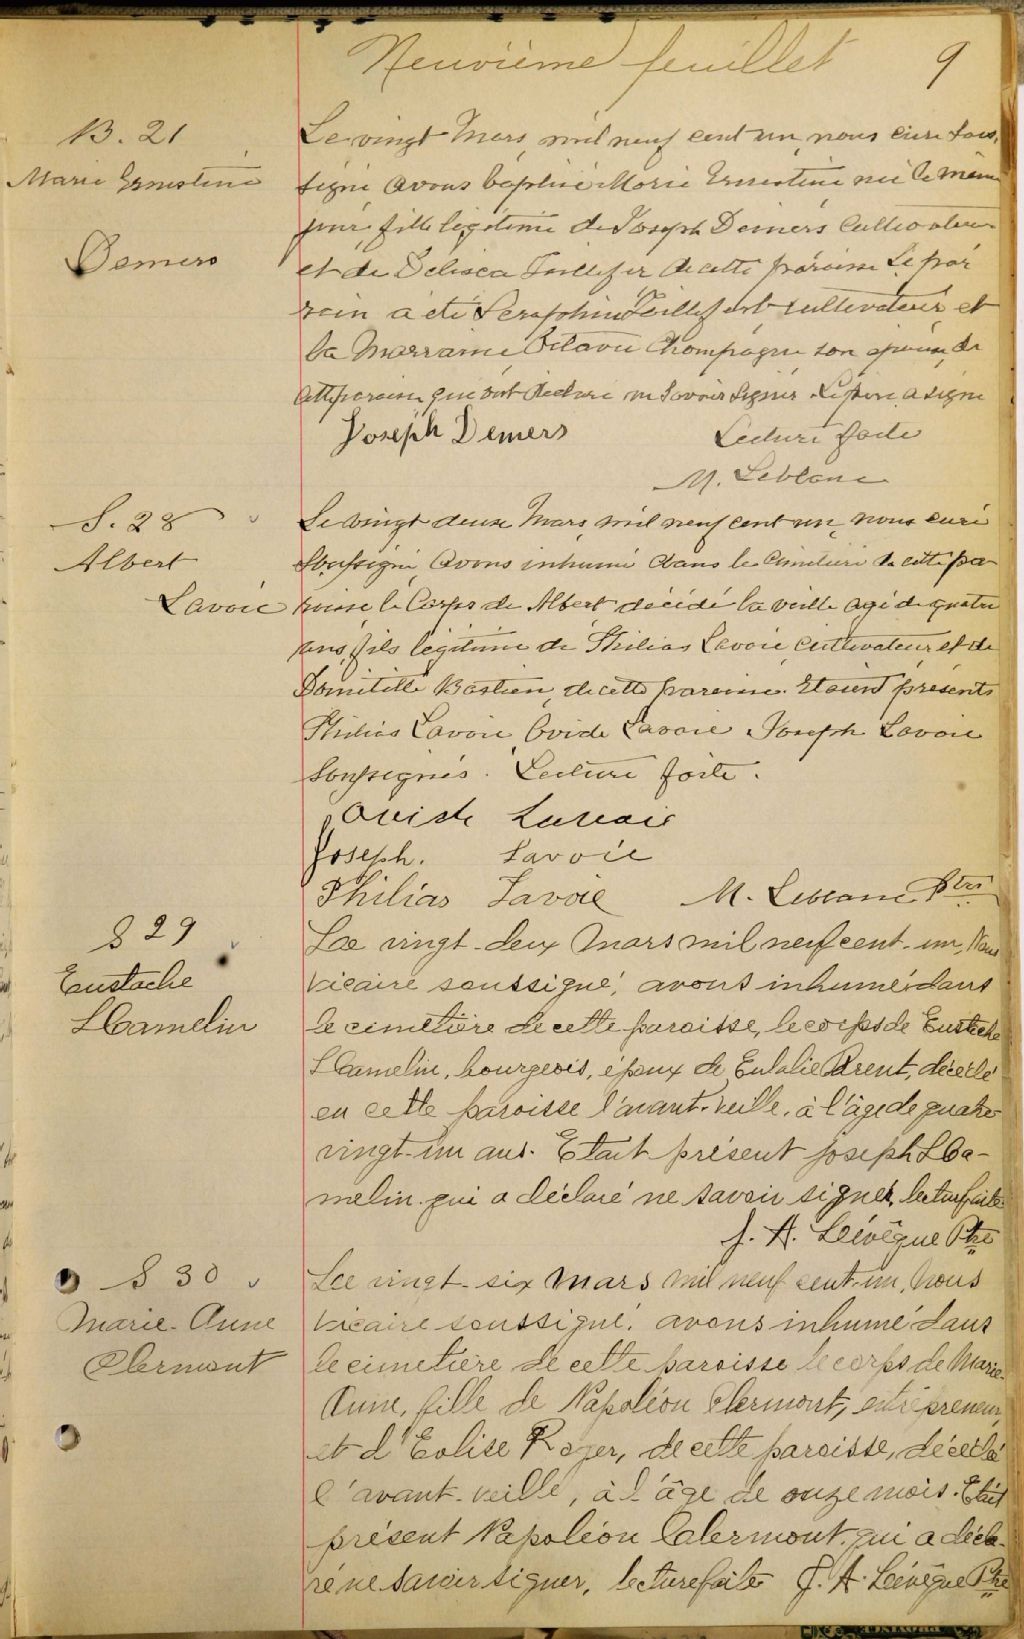 Neuvième feuillet 9
B. 21
Marie Ernestine
Demers
Le vingt Mars, mil neuf cent un, nous curé sous,
signé avons baptisé Marie Ernestine née le même
jour, fille légitime de Joseph Demers cultivateur
et de Delisca Taillefer de cette paroisse. Le par
rain a été Seraphin Taillefert cultivateur, et
la Marraine Octavie Champagne son épouse, de
cette paroisse, qui ont déclaré ne savoir signer. Le père a signé
Joseph Demers Lecture faite
M. Leblanc
S. 28
Albert
Lavoie
Le vingt deux Mars, mil neuf cent un, nous curé
soussigné avons inhumé dans le cimetière de cette pa-
roisse le Corps de Albert décédé la veille agé de quatre
ans, fils légitime de Philias Lavoie cultivateur et de
Domitille Bastien, de cette paroisse. Etaient présents
Philias Lavoie, Ovide Lavoie Joseph Lavoie
soussignés. Lecture faite.
Ovide Lavoie
Joseph. Lavoie
Philias Lavoie M. Leblanc Ptre
S 29
Eustache
Hamelin
Le vingt-deux Mars mil neuf cent-un, Nous
vicaire soussigné, avons inhumé dans
le cimetière de cette paroisse, le corps de Eustache
Hamelin, bourgeois, époux de Eulalie Parent, décédé
en cette paroisse l'avant-veille, à l'âge de quatre
vingt-un ans. Etait présent Joseph Ha-
melin qui a déclaré ne savoir signer, lecture faite
J. A. Lévêque Ptre
S 30
Marie-Anne
Clermont
Le vingt-six Mars mil neuf cent-un, Nous
vicaire soussigné, avons inhumé dans
le cimetière de cette paroisse le corps de Marie-
Anne, fille de Napoléon Clermont, entrepreneur,
et d'Eolise Roger, de cette paroisse, décédée
l'avant-veille, à l'âge de onze mois. Etait
présent Napoléon Clermont, qui a décla-
ré ne savoir signer, lecture faite J. A. Lévêque Ptre